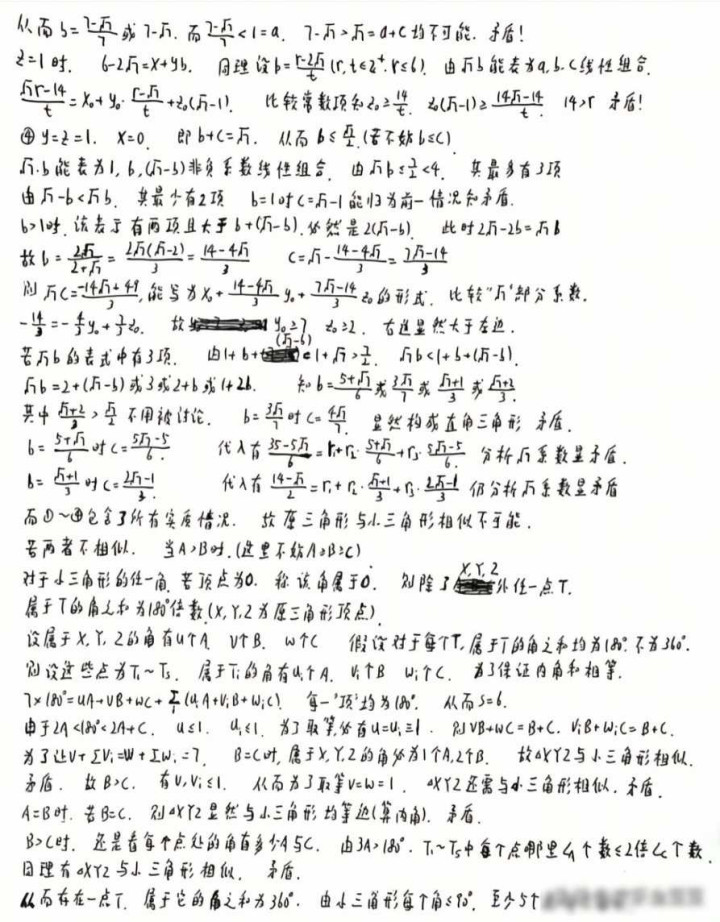 从而 b=(7-√7)/7 或 7-√7. 而 (7-√7)/7<1=a. 7-√7>√7=a+c 均不可能. 矛盾!
z=1时. 6-2√7=x+yb. 同理设 b=(r-2√7)/t (r,t∈Z⁺. r≤6). 由√7b能表为a,b,c线性组合.
(√7r-14)/t=x₀+y₀·(r-√7)/t+z₀(√7-1). 比较常数项知z₀≥14/t. z₀(√7-1)≥(14√7-14)/t. 14>r 矛盾!
④ y=z=1. x=0. 即 b+c=√7. 从而 b≤√7/2.(若不妨b≤c)
√7·b能表为1,b,(√7-b)非负系数线性组合. 由√7b≤7/2<4. 其最多有3项
由√7-b<√7b. 其最少有2项 b=1时c=√7-1能归为前一情况知矛盾.
b>1时. 该表示有两项且大于b+(√7-b).必然是2(√7-b). 此时2√7-2b=√7b
故b=2√7/(2+√7)=2√7(√7-2)/3=(14-4√7)/3 c=√7-(14-4√7)/3=(7√7-14)/3
则√7c=(-14√7+49)/3,能写为x₀+(14-4√7)/3 y₀+(7√7-14)/3 z₀的形式. 比较"√7"部分系数.
-14/3=-4/3y₀+7/3z₀. 故 y₀≥7 z₀≥2. 右边显然大于左边.
若√7b的表式中有3项. 由1+b+(√7-b)=1+√7>7/2. √7b<1+b+(√7-b).
√7b=2+(√7-b)或3或2+b或1+2b. 知b=(5+√7)/6或3√7/7或(√7+1)/3或(√7+2)/3.
其中(√7+2)/3>√7/2不用被讨论. b=3√7/7时c=4√7/7. 显然构成直角三角形 矛盾.
b=(5+√7)/6时c=(5√7-5)/6 代入有(35-5√7)/6=r₁+r₂·(5+√7)/6+r₃·(5√7-5)/6. 分析√7系数显矛盾.
b=(√7+1)/3时c=(2√7-1)/3. 代入有(14-√7)/2=r₁+r₂·(√7+1)/3+r₃·(2√7-1)/3 仍分析√7系数显矛盾
而①~④包含了所有实质情况. 故原三角形与小三角形相似不可能.
若两者不相似. 当A>B时.(这里不妨A≥B≥C)
对于小三角形的任一角,若顶点为O. 称该角属于O. 则除了X,Y,Z外任一点T.
属于T的角之和为180°倍数(X,Y,Z为原三角形顶点).
设属于X,Y,Z的角有u个A V个B. w个C 假设对于每个T,属于T的角之和均为180°.不为360°.
则设这些点为T₁~Ts. 属于Ti的角有uᵢ个A. vᵢ个B wᵢ个C. 为了保证内角和相等.
7×180°=uA+vB+wC+Σ(uᵢA+vᵢB+wᵢC). 每一"项"均为180°. 从而s=6.
由于2A<180°<2A+C. u≤1. uᵢ≤1. 为了取等,必有u=uᵢ≡1. 则vB+wC=B+C. vᵢB+wᵢC=B+C.
为了让v+Σvᵢ=w+Σwᵢ=7. B=C时,属于X,Y,Z的角必为1个A,2个B. 故△XYZ与小三角形相似.
矛盾. 故B>C. 有v,vᵢ≤1. 从而为了取等v=w=1. △XYZ还需与小三角形相似.矛盾.
A=B时. 若B=C. 则△XYZ显然与小三角形均等边(算内角). 矛盾.
B>C时. 还是看每个点处的角有多少A与C. 由3A>180°. T₁~Ts中每个点那里∠A个数≤2倍∠C个数.
同理有△XYZ与小三角形相似. 矛盾.
从而存在一点T. 属于它的角之和为360°. 由小三角形每个角≤90°. 至少5个